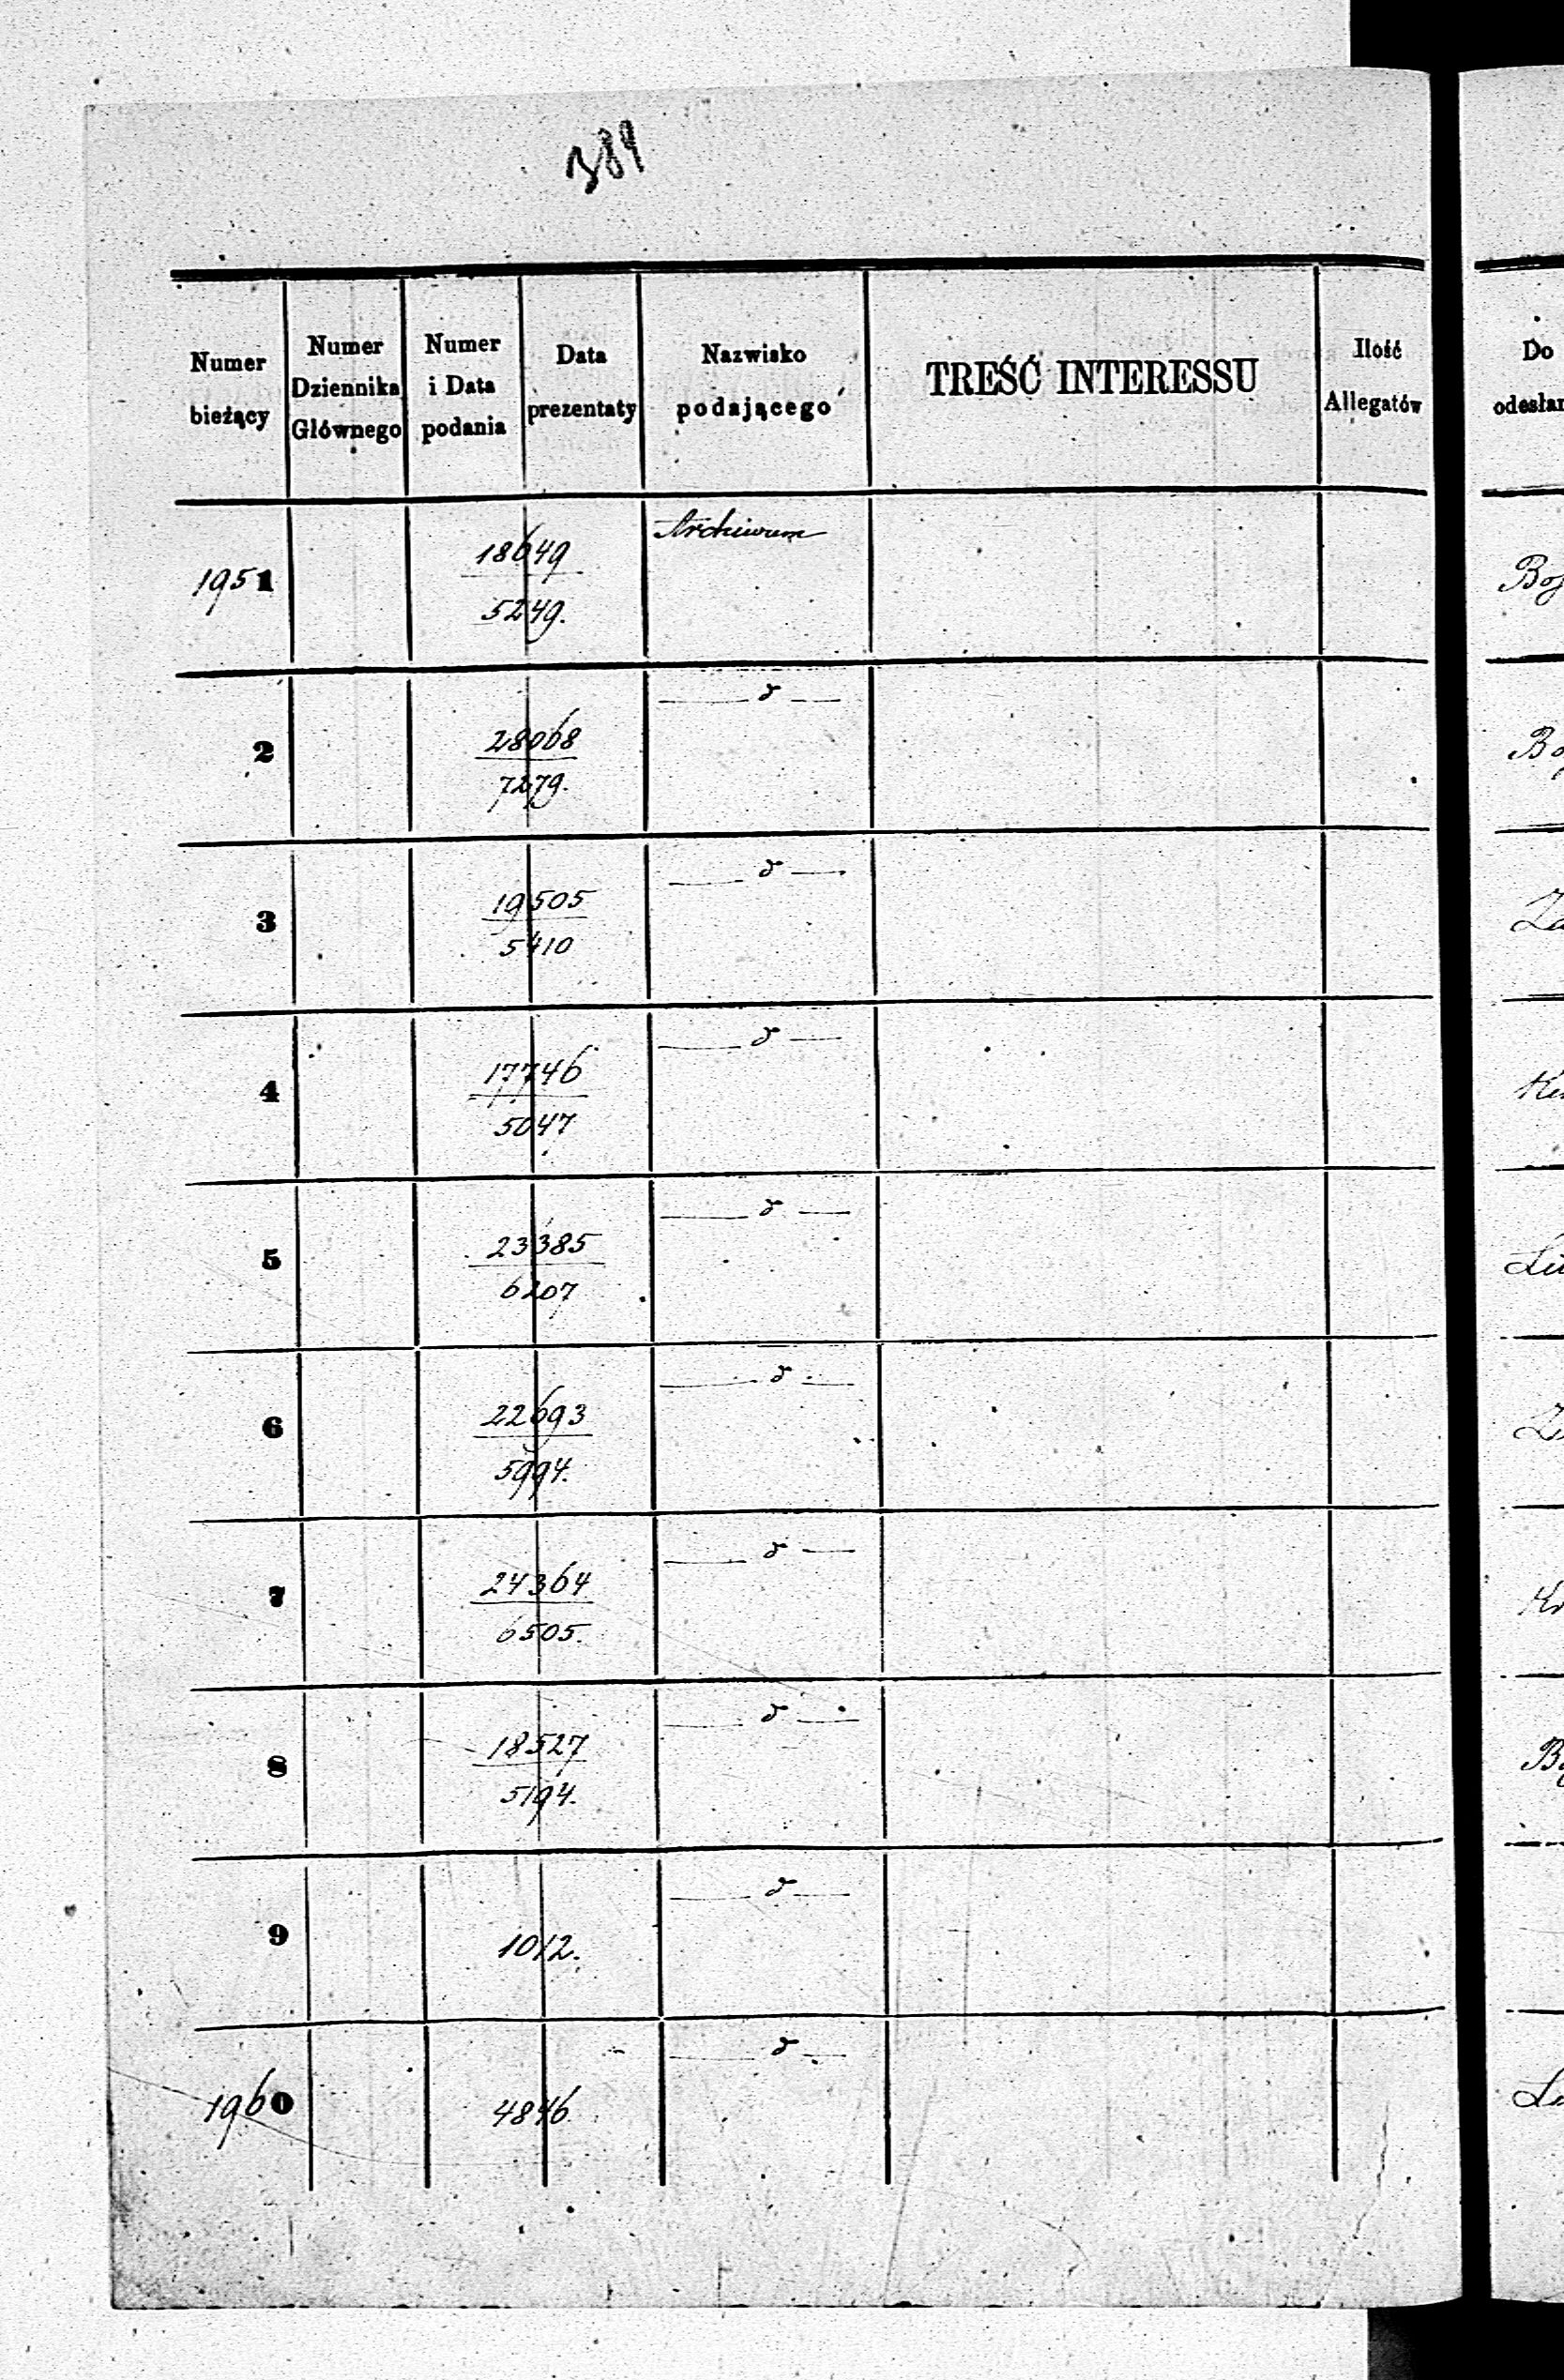 389
Numer bieżący
Numer Dziennika Głównego
Numer i Data podania
Data prezentaty
Nazwisko podającego
TREŚĆ INTERESSU
Ilość Allegatów
Do
1951
18649
5249.
Archiwum
2
28068
7279.
d
3
19505
5410
d
4
17746
5047
d
5
23385
6207
d
6
22693
5994.
d
7
24364
6505.
d
8
18527
5194.
d
9
1012.
d
1960
4846
d